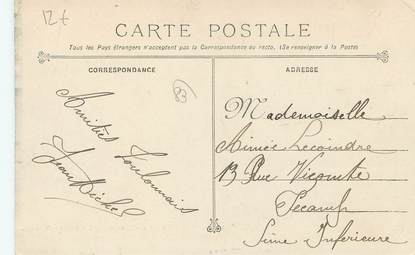 12 €
CARTE POSTALE
Tous les Pays étrangers n'acceptent pas la Correspondance au recto. (Se renseigner à la Poste)
CORRESPONDANCE
ADRESSE
83
Amitiés
Toulonnais
Jean Michel
Mademoiselle
Aimée Lecointre
13 Rue Vicomte
Fecamp
Seine Inferieure